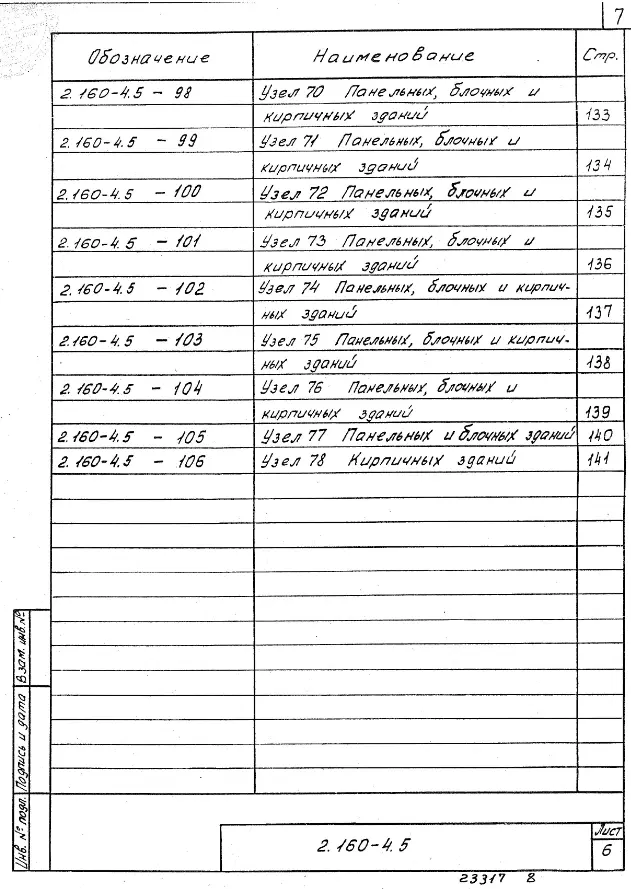 7
Обозначение Наименование Стр.
2.160-4.5 - 98 Узел 70 Панельных, блочных и
кирпичных зданий 133
2.160-4.5 - 99 Узел 71 Панельных, блочных и
кирпичных зданий 134
2.160-4.5 - 100 Узел 72 Панельных, блочных и
кирпичных зданий 135
2.160-4.5 - 101 Узел 73 Панельных, блочных и
кирпичных зданий 136
2.160-4.5 - 102 Узел 74 Панельных, блочных и кирпич-
ных зданий 137
2.160-4.5 - 103 Узел 75 Панельных, блочных и кирпич-
ных зданий 138
2.160-4.5 - 104 Узел 76 Панельных, блочных и
кирпичных зданий 139
2.160-4.5 - 105 Узел 77 Панельных и блочных зданий 140
2.160-4.5 - 106 Узел 78 Кирпичных зданий 141
Взам. инв. №
Подпись и дата
Инв. № подл.
2.160-4.5
Лист
6
23317 8